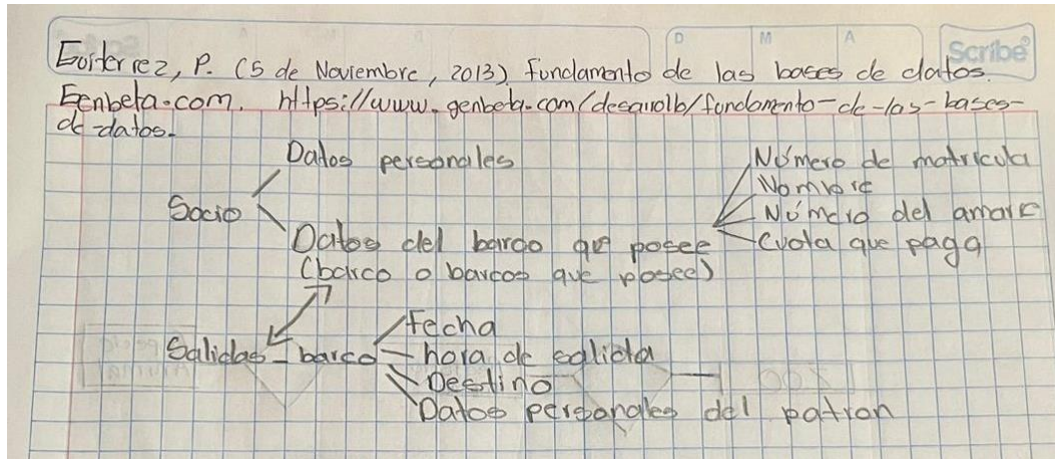 D M A Scribe
Goiterrez, P. (5 de Noviembre, 2013). Fundamento de las bases de datos.
Genbeta.com. https://www.genbeta.com/desarrollo/fundamento-de-las-bases-
de-datos.
Datos personales
Socio
Datos del barco que posee
(barco o barcos que posee)
Número de matricula
Nombre
Número del amarre
Cuota que paga
Salidas-barco
Fecha
hora de salida
Destino
Datos personales del patron